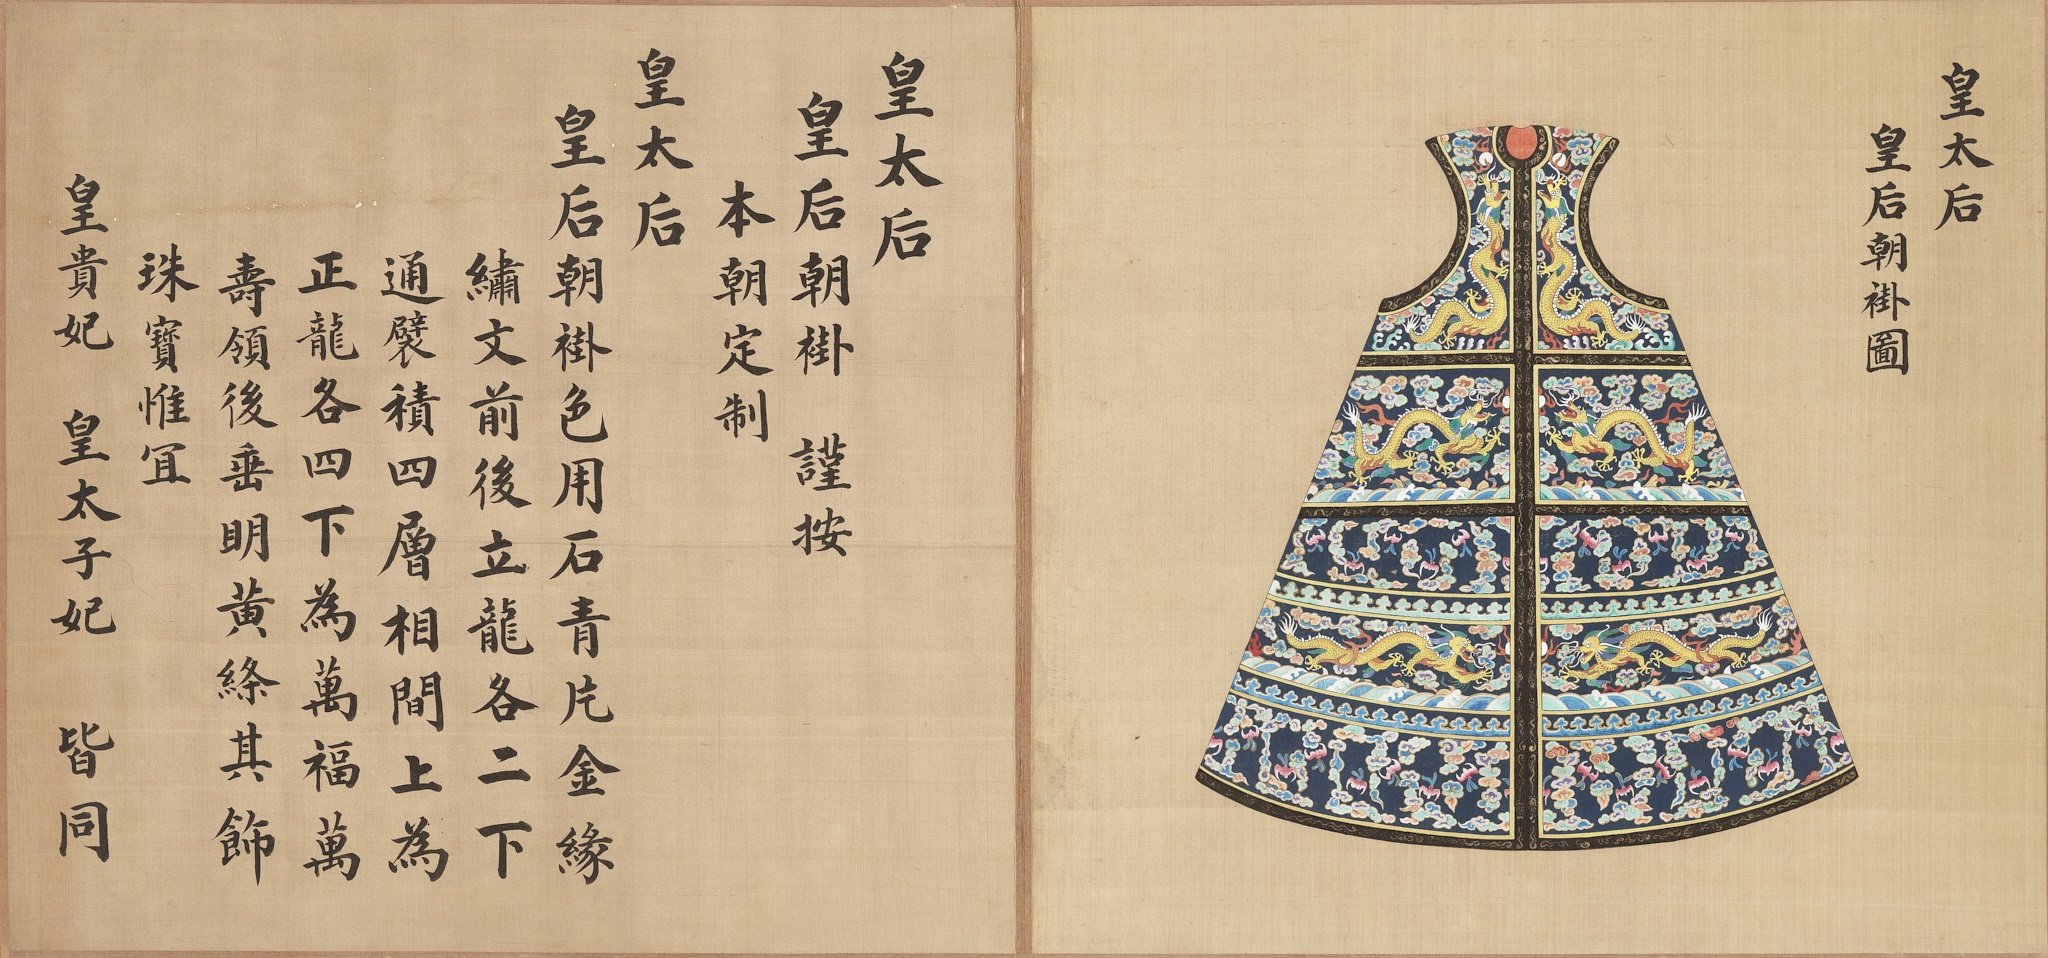 皇太后
皇后朝褂圖
皇太后
皇后朝褂 謹按
本朝定制
皇太后
皇后朝褂色用石青片金緣
繡文前後立龍各二下
通襞積四層相間上為
正龍各四下為萬福萬
壽領後垂明黃絛其飾
珠寶惟宜
皇貴妃 皇太子妃 皆同